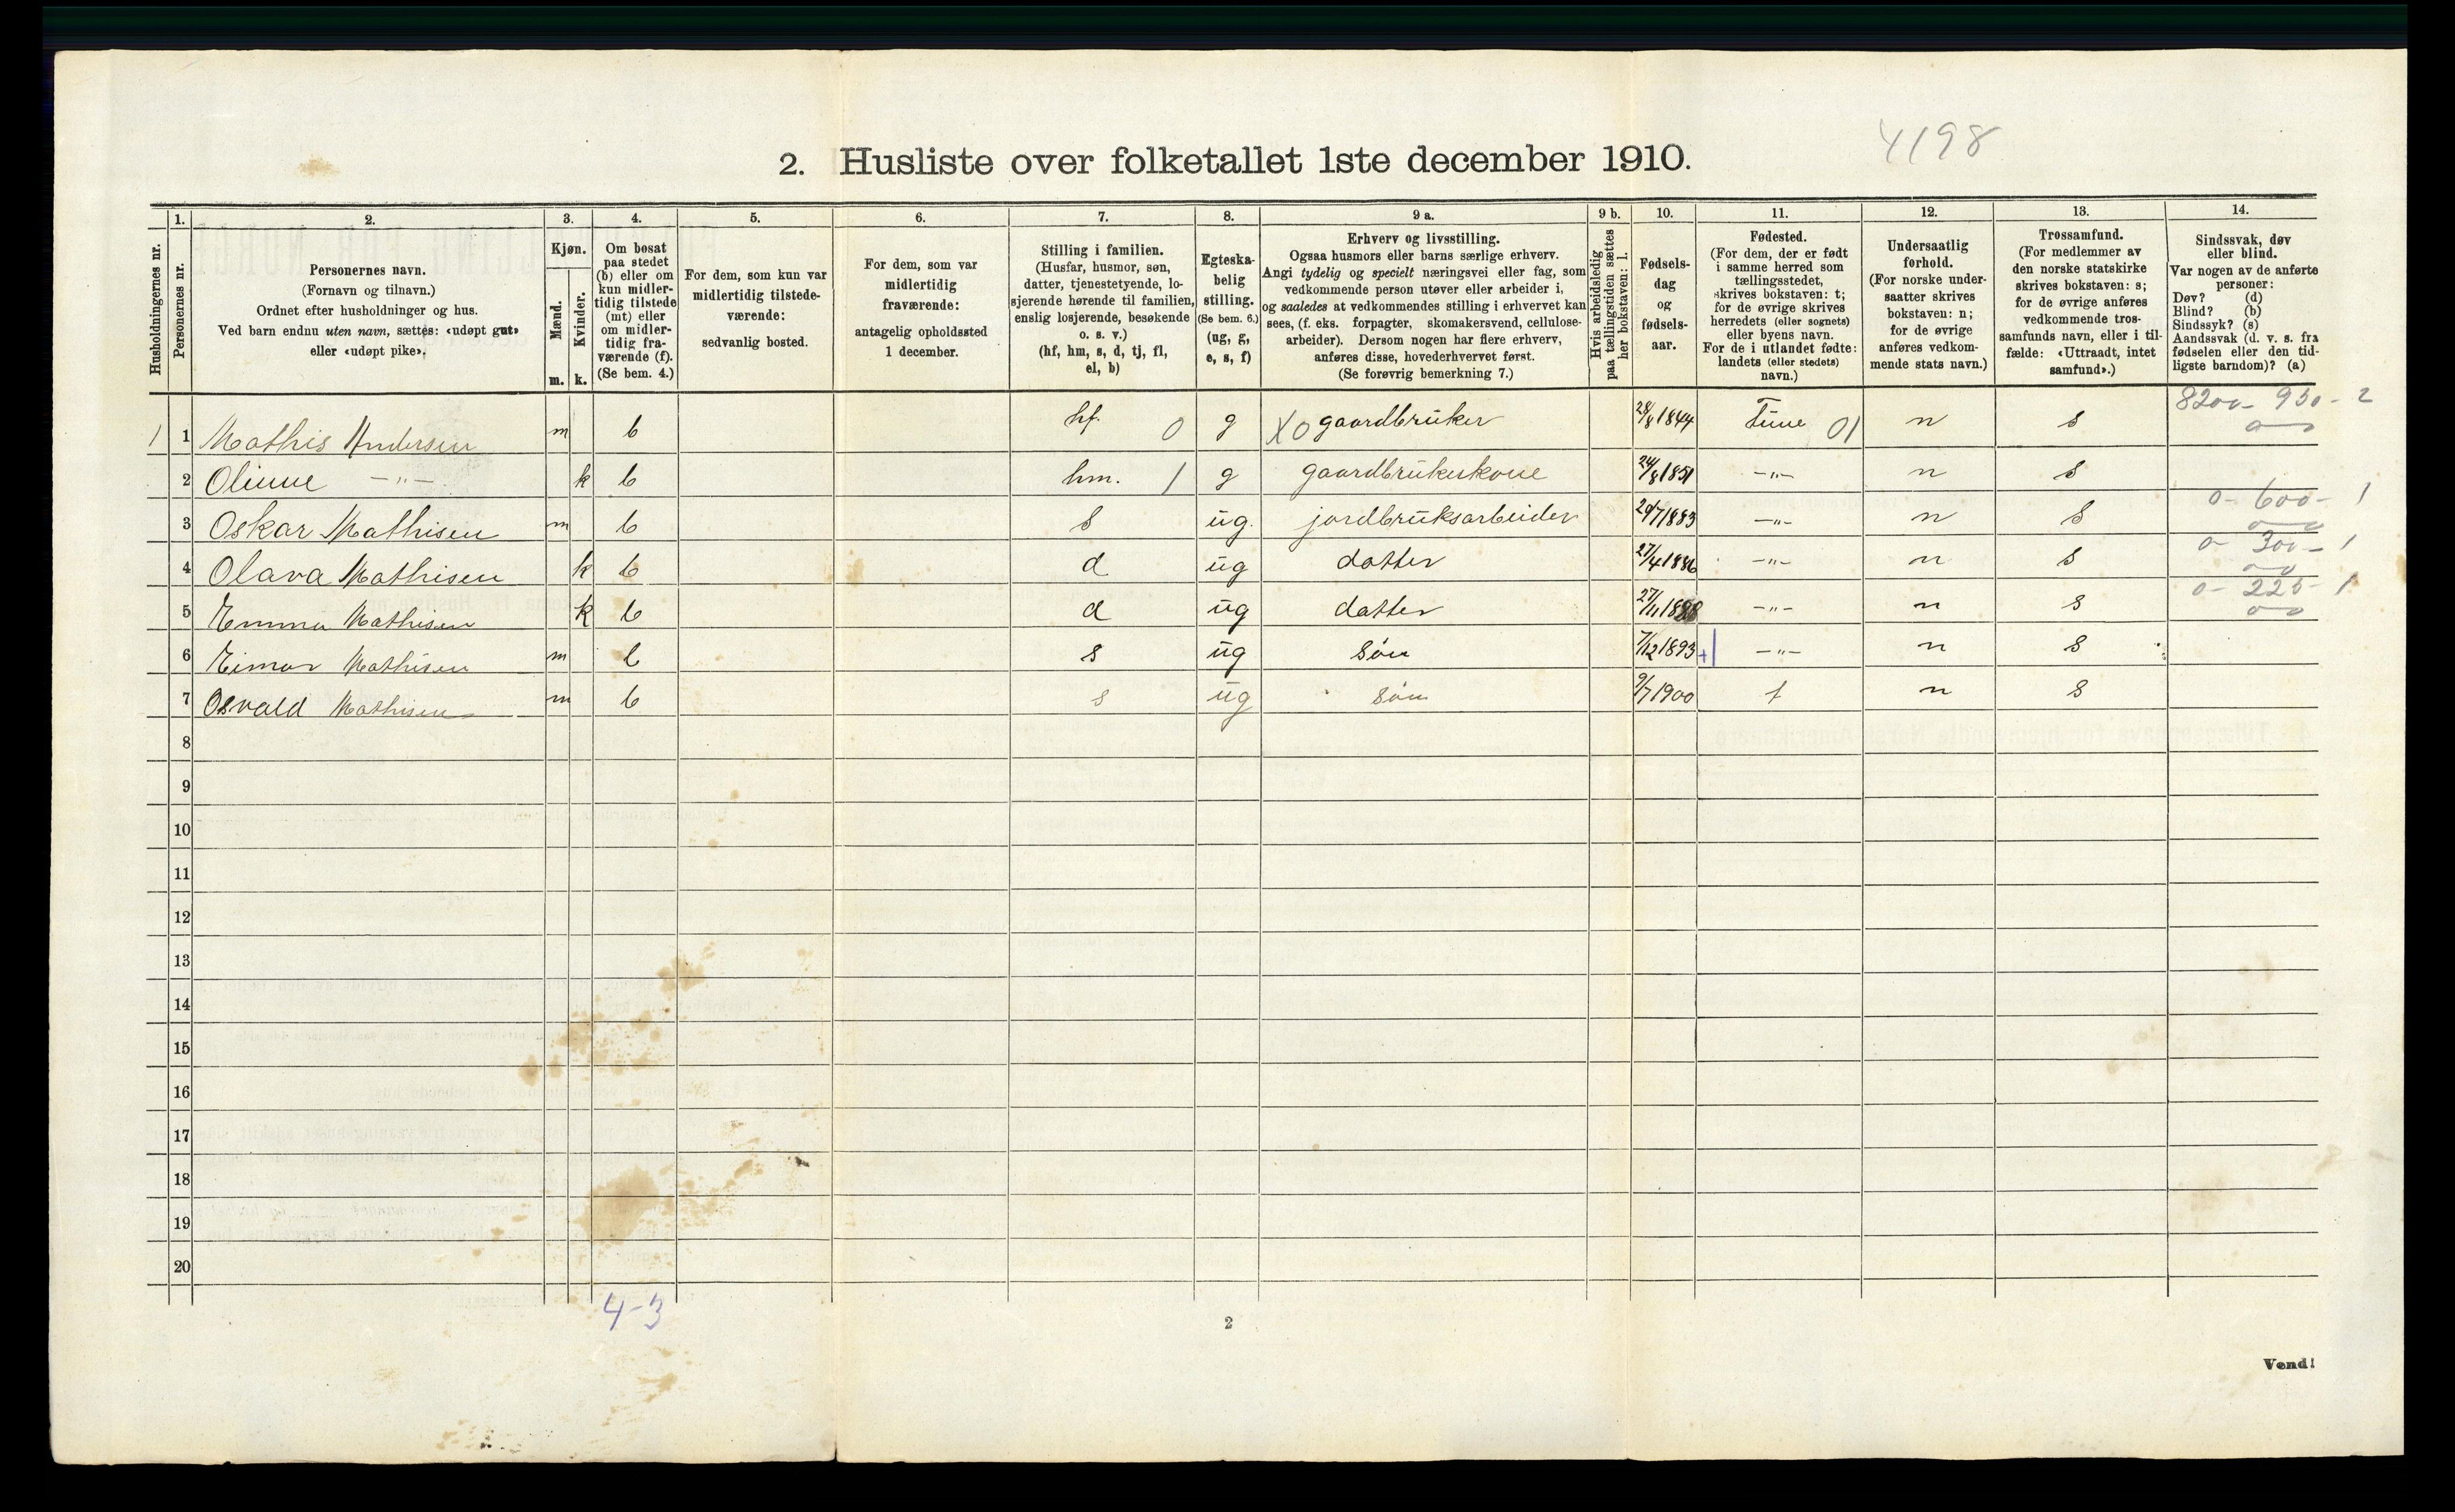 4198
2. Husliste over folketallet 1ste december 1910.
Husholdningernes nr.
1.
Personernes nr.
2.
Personernes navn.
(Fornavn og tilnavn.)
Ordnet efter husholdninger og hus.
Ved barn endnu uten navn, sættes: «udøpt gut»
eller «udøpt pike».
3.
Kjøn.
Mænd.
Kvinder.
m. k.
4.
Om bosat
paa stedet
(b) eller om
kun midler-
tidig tilstede
(mt) eller
om midler-
tidig fra-
værende (f).
(Se bem. 4.)
5.
For dem, som kun var
midlertidig tilstede-
værende:
sedvanlig bosted.
6.
For dem, som var
midlertidig
fraværende:
antagelig opholdssted
1 december.
7.
Stilling i familien.
(Husfar, husmor, søn,
datter, tjenestetyende, lo-
sjerende hørende til familien,
enslig losjerende, besøkende
o. s. v.)
(hf, hm, s, d, tj, fl,
el, b)
8.
Egteska-
belig
stilling.
(Se bem. 6.)
(ug, g,
e, s, f)
9 a.
Erhverv og livsstilling.
Ogsaa husmors eller barns særlige erhverv.
Angi tydelig og specielt næringsvei eller fag, som
vedkommende person utøver eller arbeider i,
og saaledes at vedkommendes stilling i erhvervet kan
sees, (f. eks. forpagter, skomakersvend, cellulose-
arbeider). Dersom nogen har flere erhverv,
anføres disse, hovederhvervet først.
(Se forøvrig bemerkning 7.)
9 b.
Hvis arbeidsledig
paa tællingstiden sættes
her bokstaven: l.
10.
Fødsels-
dag
og
fødsels-
aar.
11.
Fødested.
(For dem, der er født
i samme herred som
tællingsstedet,
skrives bokstaven: t;
for de øvrige skrives
herredets (eller sognets)
eller byens navn.
For de i utlandet fødte:
landets (eller stedets)
navn.)
12.
Undersaatlig
forhold.
(For norske under-
saatter skrives
bokstaven: n;
for de øvrige
anføres vedkom-
mende stats navn.)
13.
Trossamfund.
(For medlemmer av
den norske statskirke
skrives bokstaven: s;
for de øvrige anføres
vedkommende tros-
samfunds navn, eller i til-
fælde: «Uttraadt, intet
samfund».)
14.
Sindssvak, døv
eller blind.
Var nogen av de anførte
personer:
Døv? (d)
Blind? (b)
Sindssyk? (s)
Aandssvak (d. v. s. fra
fødselen eller den tid-
ligste barndom)? (a)
1 1 Mathis Andersen m b hf. 0 g X0 gaardbruker 28/8 1844 Tune 01 n s 8200- 950- 2
2 Oliane -"- k b hm. 1 g gaardbrukerkone 24/8 1851 -"- n s
3 Oskar Mathisen m b s ug. jordbruksarbeider 29/7 1883 -"- n s 0- 600- 1
4 Olava Mathisen k b d ug datter 27/4 1886 -"- n s 0- 300- 1
5 Emma Mathisen k b d ug datter 27/11 1888 -"- n s 0- 225- 1
6 Einar Mathisen m b s ug søn 7/12 1893 +| -"- n s
7 Osvald Mathisen m b s ug søn 9/7 1900 t n s
8
9
10
11
12
13
14
15
16
17
18
19
20
4-3
2
Vend!